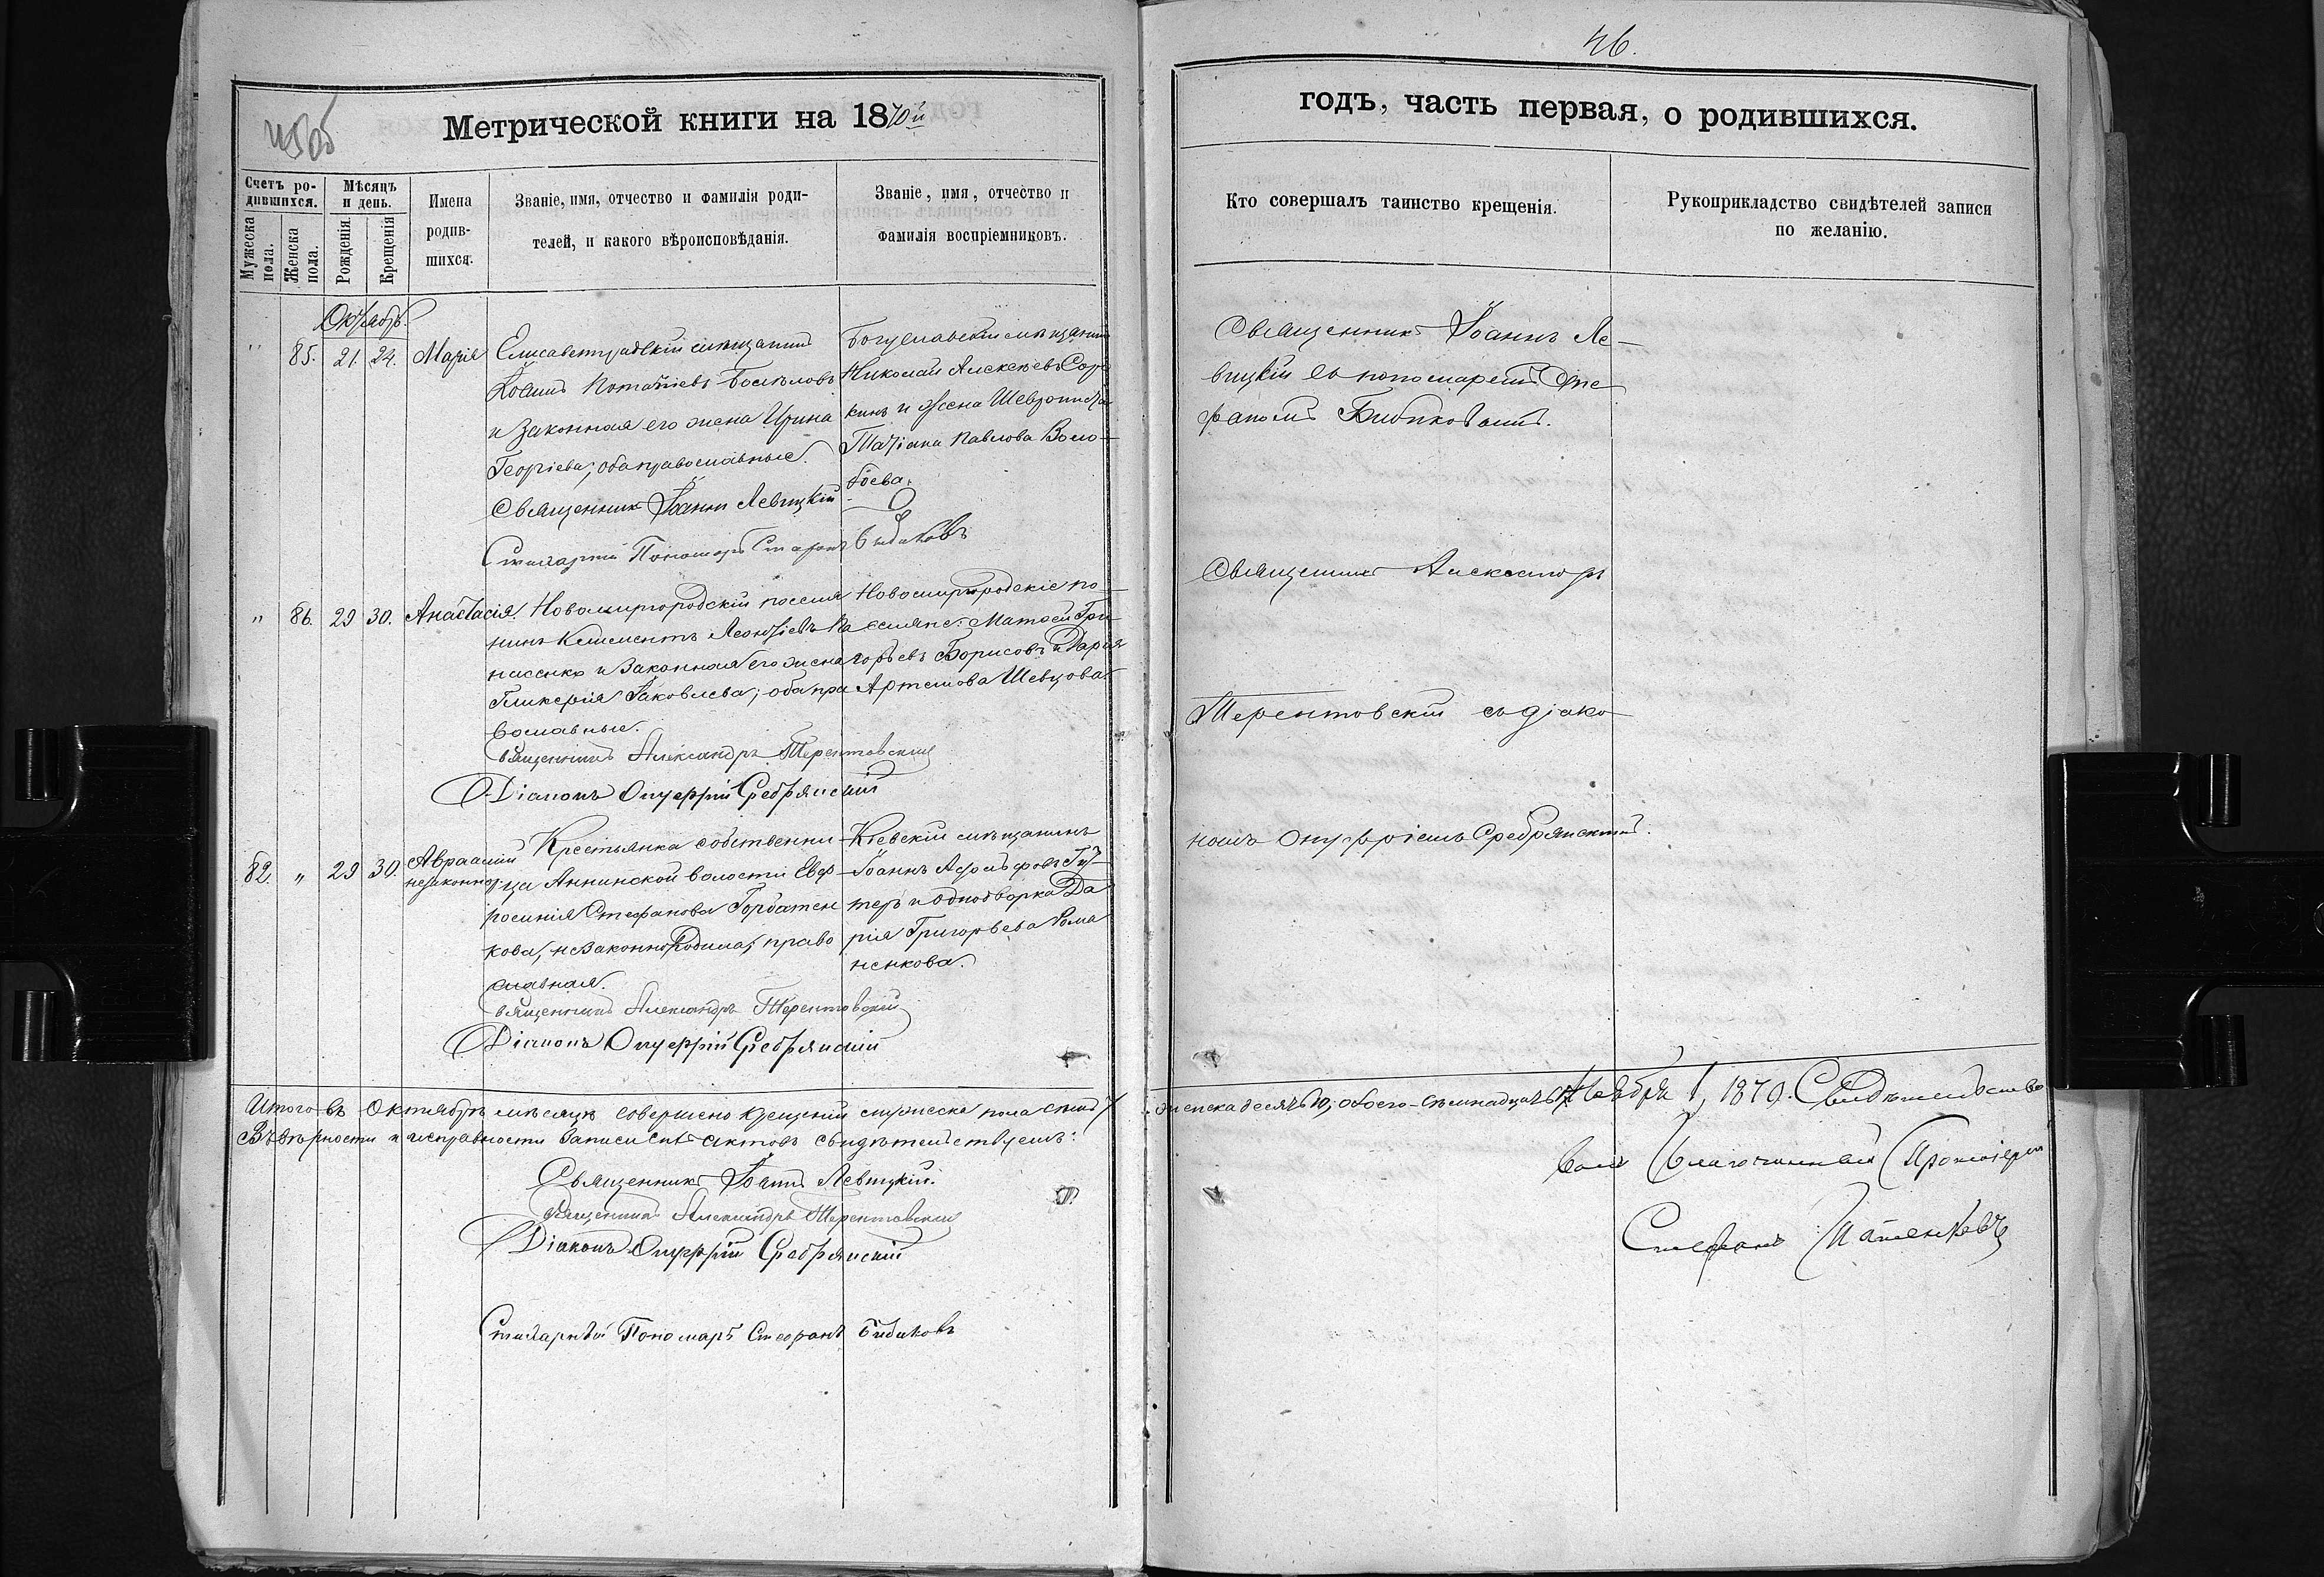 46.
Метрической книги на 1870й
годъ, часть первая, о родившихся.
Счетъ ро-
дившихся.
Мужеска пола.
Женска пола.
Мѣсяцъ и день.
Рожденія.
Крещенія
Имена
родив-
шихся.
Званіе, имя, отчество и фамилія роди-
телей, и какого вѣроисповѣданія.
Званіе, имя, отчество и
фамилія воспріемниковъ.
Кто совершалъ таинство крещенія.
Рукоприкладство свидѣтелей записи
по желанію.
Октябрь.
" 85. 21. 24. Марія
Елисаветградскій мѣщанинъ
Іоаннъ
и законная его жена Ирина
Георгіева; оба православные.
Священникъ Іоаннъ Левицкій
Стихарный Пономарь Стефанъ Бибиковъ
Богуславскій мѣщанинъ
Николай Алексѣевъ
кинъ и жена
Татіана Павлова Воло-
боева.
Священникъ Іоаннъ Ле-
вицкій съ пономаремъ Сте
фаномъ Бибиковымъ.
" 86. 29 30. Анастасія.
Новомиргородскій поселя
нинъ Климентъ Леонтіевъ Па
насенко и законная его жена
Гликерія Іаковлева; оба пра
вославные.
Священникъ Александръ Терентовскій
Діаконъ Онуфрій Сребрянскій
Новомиргородскіе по-
селяне: Матѳей Гри-
горьевъ Борисовъ и Дарія
Артемова Шевцова.
Священникъ Александръ
Терентовскій съ діако-
номъ Онуфріемъ Сребрянскимъ.
82. " 29 30. Авраамій
незаконно
Крестьянка собственни-
ца Аннинской волости Евф-
росинія Стефанова Горбатен
кова, незаконнородила, право
славная.
Священникъ Александръ Терентовскій
Діаконъ Онуфрій Сребрянскій
Кіевскій мѣщанинъ
Іоаннъ
теръ и однодворка Да
рія Григорьева Рома
ненкова.
Итого въ Октябрѣ мѣсяцѣ совершено крещеній мужеска пола семь 7
женска десять 10; обоего-семнадцать 17.
Въ вѣрности и исправности записи сихъ актовъ свидѣтельствуемъ:
Священникъ Іоаннъ Левицкій.
Священникъ Александръ Терентовскій
Діаконъ Онуфрій Сребрянскій
Стихарный Пономарь Стефанъ Бибиковъ
Ноября 1, 1870. Свидѣтельство
валъ Благочинный Протоіерей
Стефанъ